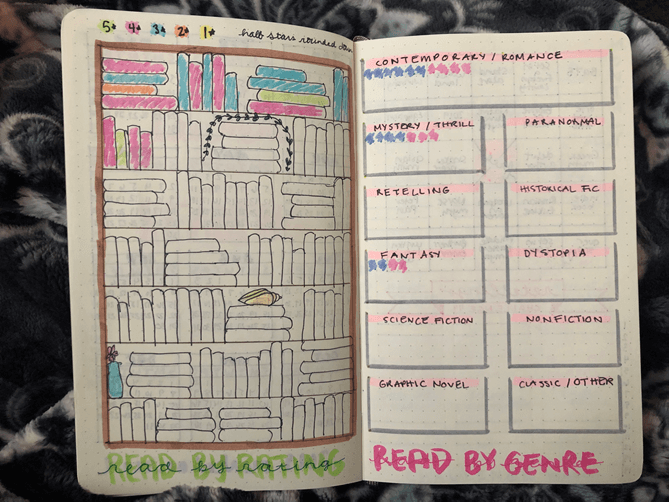 5★ 4★ 3★ 2★ 1★
half stars rounded down
read by rating
READ BY RATING
CONTEMPORARY / ROMANCE
MYSTERY / THRILL
PARANORMAL
RETELLING
HISTORICAL FIC
FANTASY
DYSTOPIA
SCIENCE FICTION
NONFICTION
GRAPHIC NOVEL
CLASSIC / OTHER
READ BY GENRE